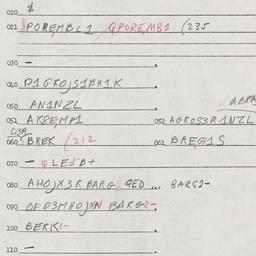 020 $
021 POREMBC1 QPOREMB1 (235
030 —
040 D1GROJS1BR1K
050 AN1NZL
051 AK8EMP1 052 AGROS3R1NZL
D3R
060 BREK (212 061 BREG1S
070 —
080 AHOJX3R BARG 9ED ... BARG2-
090 OFD3MHOJXN BARG2-
100 BERK1-
110 —